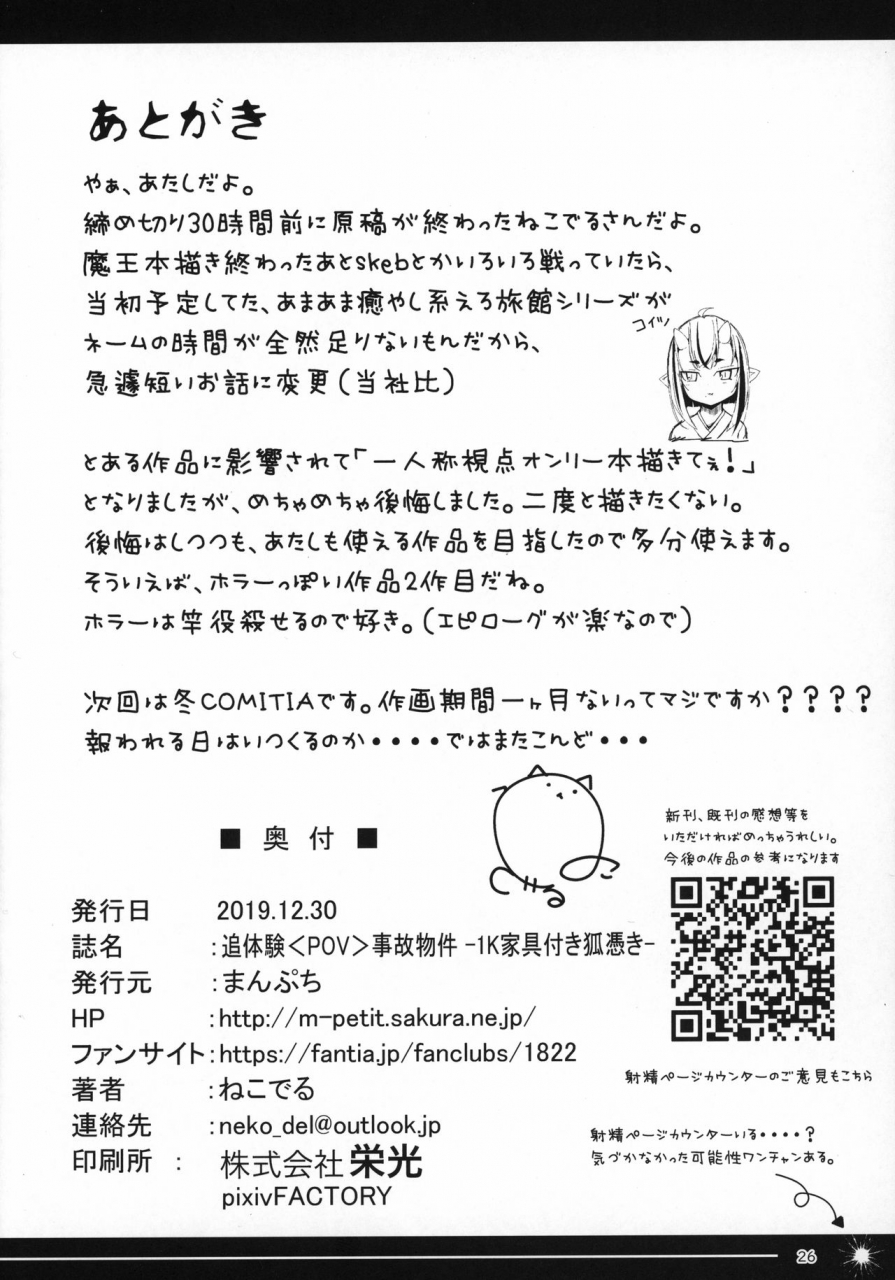 あとがき
やぁ、あたしだよ。
締め切り30時間前に原稿が終わったねこでるさんだよ。
魔王本描き終わったあとskebとかいろいろ戦っていたら、
当初予定してた、あまあま癒やし系えろ旅館シリーズが
ネームの時間が全然足りないもんだから、
急遽短いお話に変更(当社比)
コイツ
とある作品に影響されて「一人称視点オンリー本描きてぇ!」
となりましたが、めちゃめちゃ後悔しました。二度と描きたくない。
後悔はしつつも、あたしも使える作品を目指したので多分使えます。
そういえば、ホラーっぽい作品2作目だね。
ホラーは竿役殺せるので好き。(エピローグが楽なので)
次回は冬COMITIAです。作画期間一ヶ月ないってマジですか????
報われる日はいつくるのか・・・・ではまたこんど・・・
■ 奥 付 ■
発行日 2019.12.30
誌名 :追体験<POV>事故物件 -1K家具付き狐憑き-
発行元 :まんぷち
HP :http://m-petit.sakura.ne.jp/
ファンサイト:https://fantia.jp/fanclubs/1822
著者 :ねこでる
連絡先 :neko_del@outlook.jp
印刷所 : 株式会社 栄光
pixivFACTORY
新刊、既刊の感想等を
いただければめっちゃうれしい。
今後の作品の参考になります
射精ページカウンターのご意見もこちら
射精ページカウンターいる・・・・?
気づかなかった可能性ワンチャンある。
26